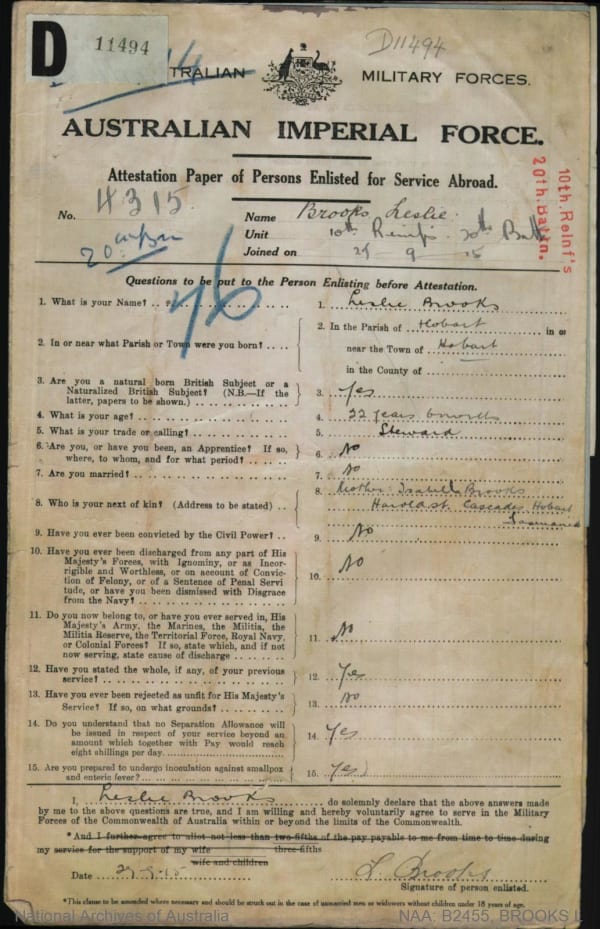 D 11494
D11494
TRALIAN MILITARY FORCES.
AUSTRALIAN IMPERIAL FORCE.
Attestation Paper of Persons Enlisted for Service Abroad.
10th. Reinf's
20th. Battn.
No. 4315
Name Brooks, Leslie.
Unit 10th Reinfs 20th Battn
Joined on 9 15
20
Questions to be put to the Person Enlisting before Attestation.
46
1. What is your Name? .. 1. Leslie Brooks
2. In or near what Parish or Town were you born? .... 2. In the Parish of Hobart in or
near the Town of Hobart
in the County of
3. Are you a natural born British Subject or a
Naturalized British Subject? (N.B.—If the
latter, papers to be shown.) 3. Yes
4. What is your age? 4. 22 years 6 months
5. What is your trade or calling? 5. Steward
6. Are you, or have you been, an Apprentice? If so,
where, to whom, and for what period? 6. No
7. Are you married? 7. No
8. Who is your next of kin? (Address to be stated) .. 8. Mother Isabella Brooks
Harold St. Cascades Hobart
Tasmania
9. Have you ever been convicted by the Civil Power? .. 9. No
10. Have you ever been discharged from any part of His
Majesty's Forces, with Ignominy, or as Incor-
rigible and Worthless, or on account of Convic-
tion of Felony, or of a Sentence of Penal Servi
tude, or have you been dismissed with Disgrace
from the Navy? 10. No
11. Do you now belong to, or have you ever served in, His
Majesty's Army, the Marines, the Militia, the
Militia Reserve, the Territorial Force, Royal Navy,
or Colonial Forces? If so, state which, and if not
now serving, state cause of discharge 11. No
12. Have you stated the whole, if any, of your previous
service? 12. Yes
13. Have you ever been rejected as unfit for His Majesty's
Service? If so, on what grounds? 13. No
14. Do you understand that no Separation Allowance will
be issued in respect of your service beyond an
amount which together with Pay would reach
eight shillings per day. 14. Yes
15. Are you prepared to undergo inoculation against smallpox
and enteric fever? 15. Yes
I, Leslie Brooks do solemnly declare that the above answers made
by me to the above questions are true, and I am willing and hereby voluntarily agree to serve in the Military
Forces of the Commonwealth of Australia within or beyond the limits of the Commonwealth.
*And I further agree to allot not less than two-fifths of the pay payable to me from time to time during
my service for the support of my wife three-fifths
wife and children
Date 9-15 L Brooks
Signature of person enlisted.
*This clause to be amended where necessary and should be struck out in the case of unmarried men or widowers without children under 18 years of age.
National Archives of Australia NAA: B2455, BROOKS L